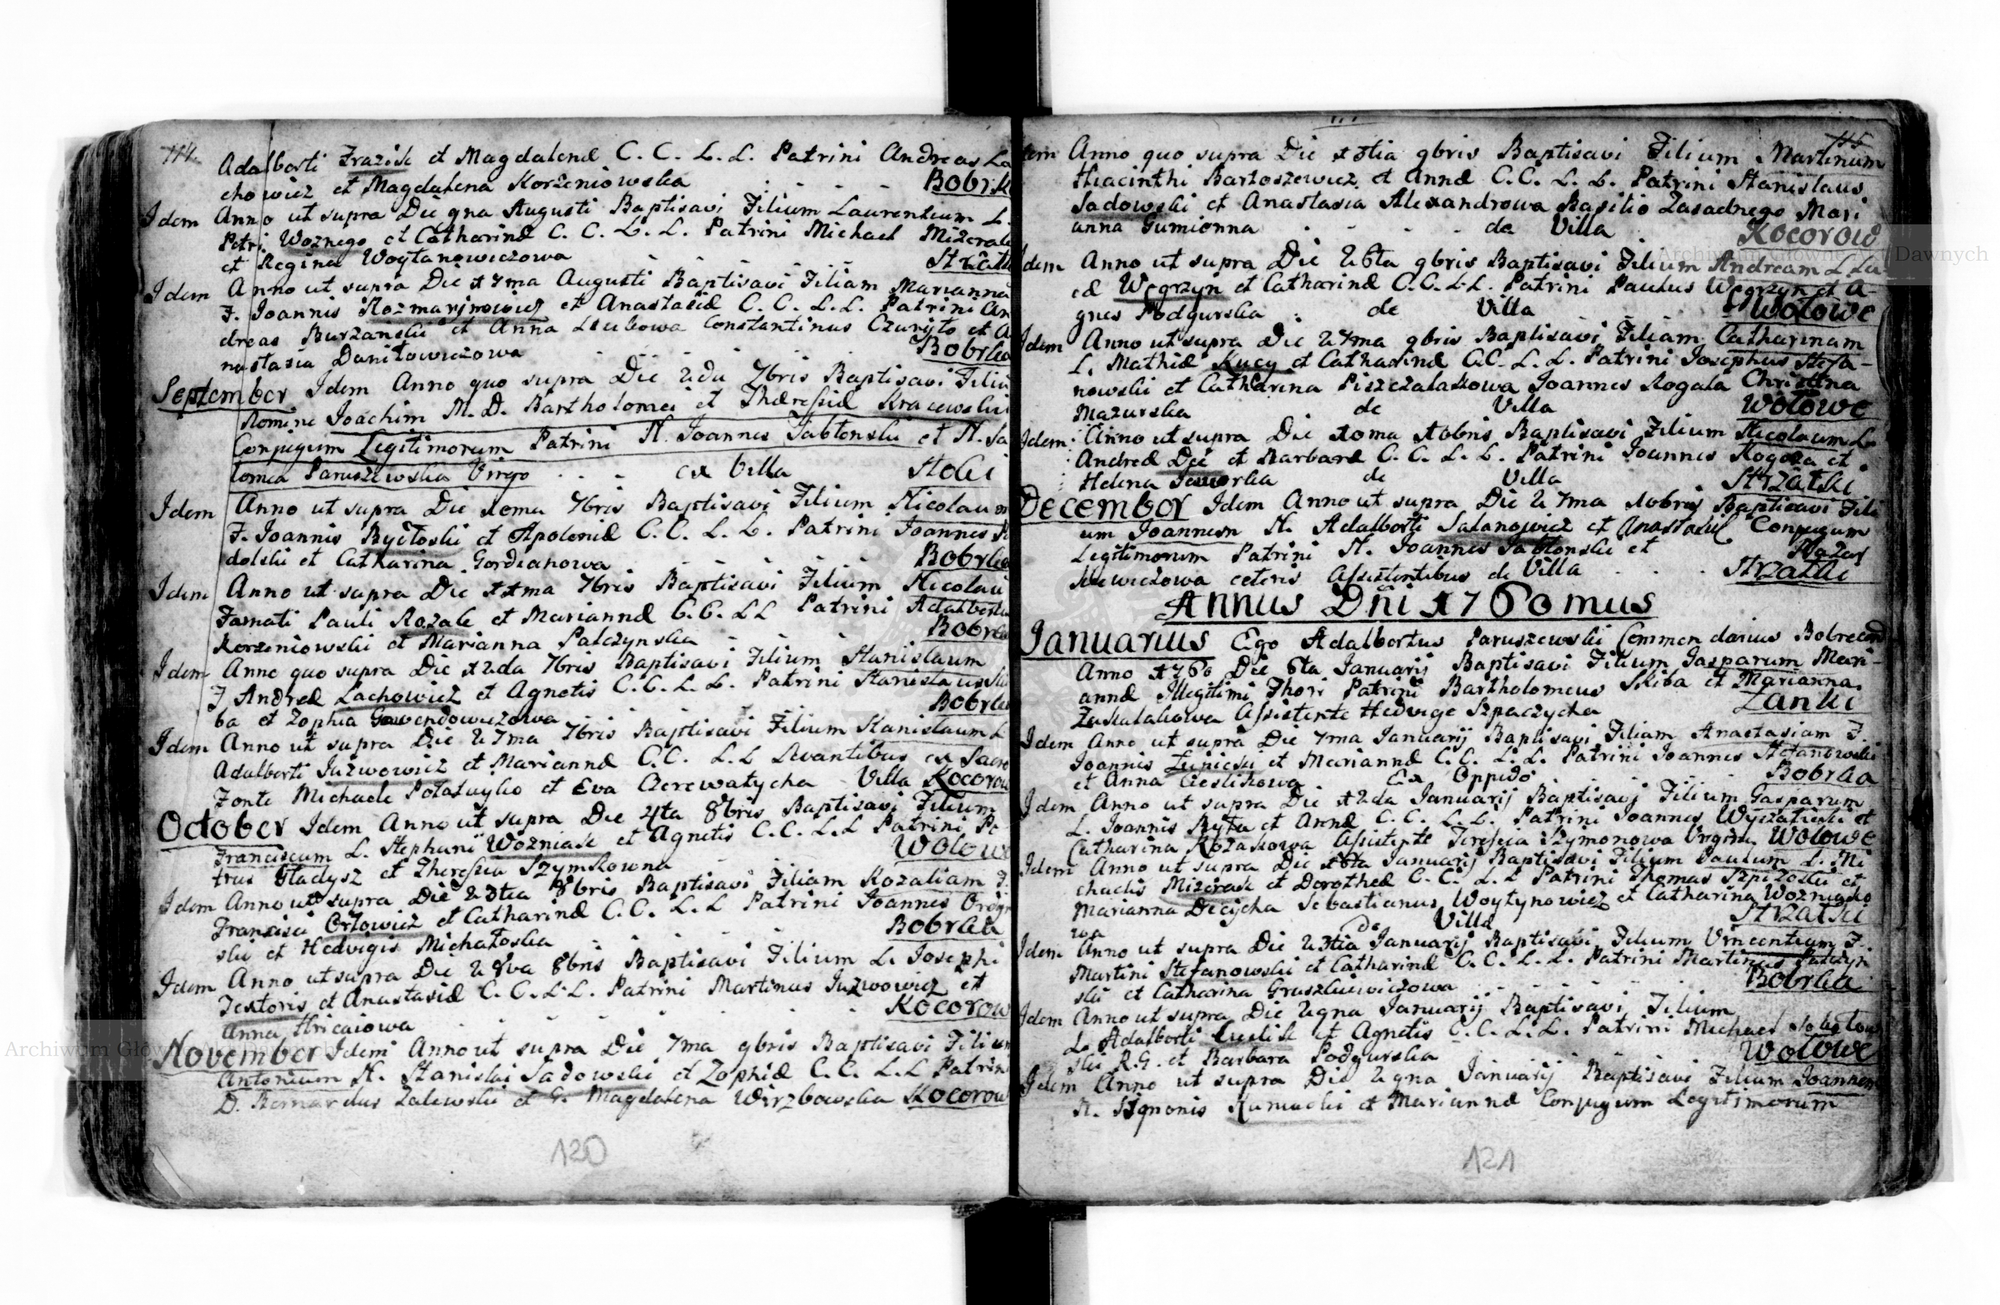 114
Adalberti Frazik et Magdalenæ C. C. L. L. Patrini Andreas La
chowicz et Magdalena Korzeniowska Bobrk
Idem Anno ut supra Die 9na Augusti Baptisavi Filium Laurentium L.
Petri Woznego et Catharinæ C. C. L. L. Patrini Michael Mizerak
et Regina Woytanowiczowa Strzałk
Idem Anno ut supra Die 17ma Augusti Baptisavi Filiam Mariannā
F. Joannis Rozmarynowicz et Anastasiæ C. C. L. L. Patrini An
dreas Burzanski et Anna Constantinus et A
nastasia Daniłowiczowa Bobrka
September Idem Anno quo supra Die 2da 7bris Baptisavi Filiū
Nomine Joachim M. D. Bartholomei et Theresiæ Kracewski
Conjugum Legitimorum Patrini N. Joannes Jabłonski et N. Sa
lomea Paruszewska Virgo ex Villa
Idem Anno ut supra Die 10ma 7bris Baptisavi Filium Nicolaum
F. Joannis et Apoloniæ C. C. L. L. Patrini Joannes
dolski et Catharina Gordianowa Bobrka
Idem Anno ut supra Die 11ma 7bris Baptisavi Filium Nicolau
Famati Pauli Rozale et Mariannæ C. C. L L Patrini Adalbertus
Korzeniowski et Marianna Palczynska Bobrka
Idem Anno quo supra Die 12da 7bris Baptisavi Filium Stanislaum
F Andreæ Lachowicz et Agnetis C. C. L. L. Patrini Stanislaus Ski
ba et Zophia Gawendowiczowa Bobrka
Idem Anno ut supra Die 27ma 7bris Baptisavi Filium Stanislaum L
Adalberti Juzwowicz et Mariannæ C. C. L. L Levantibus ex Sacro
Fonte Michaele et Eva Czerewatycha Villa Kocorow
October Idem Anno ut supra Die 4ta 8bris Baptisavi Filium
Franciscum L. Stephani Wozniak et Agnetis C. C. L. L Patrini Pe
trus Gładysz et Theresia Szymkowna Wolowe
Idem Anno ut supra Die 23tia 8bris Baptisavi Filiam Rozaliam F.
Francisci Orłowicz et Catharinæ C. C. L. L Patrini Joannes
ski et Hedvigis Michalska Bobrka
Idem Anno ut supra Die 28va 8bris Baptisavi Filium L. Josephi
Textoris et Anastasiæ C. C. L. L. Patrini Martinus Juzwowicz et
Anna Hricaiowa Kocorow
November Idem Anno ut supra Die 7ma 9bris Baptisavi Filium
Antonium N. Stanislai Sadowski et Zophiæ C. C. L L Patrini
D. Bernardus Zalewski et G. Magdalena Wirzbowska Kocorow
120
115
Idem Anno quo supra Die 13tia 9bris Baptisavi Filium Martinum
Hiacinthi Bartoszewicz et Annæ C. C. L. L. Patrini Stanislaus
Sadowski et Anastasia Alexandrowa Basilio Zasadnego Mari
anna Gumienna de Villa Kocorow
Idem Anno ut supra Die 26ta 9bris Baptisavi Filium Andream L
Węgrzyn et Catharinæ C. C. L. L. Patrini Paulus Węgrzyn et A-
gnes Podgurska de Villa Wolowe
Idem Anno ut supra Die 27ma 9bris Baptisavi Filiam Catharinam
L. Mathiæ Kucy et Catharinæ C. C. L. L. Patrini Josephus Stefa-
nowski et Catharina Piszczalakowa Joannes Rogala Christina
Mazurska de Villa Wolowe
Idem Anno ut supra Die 10ma 10bris Baptisavi Filium Nicolaum L
Andreæ et Barbaræ C. C. L. L. Patrini Joannes Rogoza et
Helena de Villa Strzałki
December Idem Anno ut supra Die 27ma 10bris Baptisavi Fili
um Joannem N. Adalberti et Anastasiæ Conjugum
Legitimorum Patrini N. Joannes Jabłonski et
kiewiczowa ceteris Assistentibus de Villa Strzałki
Annus Dni 1760mus
Januarius Ego Adalbertus Paruszewski Commendarius Bobrecen
Anno 1760 Die 6ta Januarij Baptisavi Filium Gasparum Mari-
annæ Illegitimi Thori Patrini Bartholomeus Skiba et Marianna
Assistente Hedvige Szpaczycha Łanki
Idem Anno ut supra Die 7ma Januarij Baptisavi Filiam Anastasiam F.
Joannis et Mariannæ C. C. L. L. Patrini Joannes Stefanowski
et Anna Cieslikowa Ex Oppido Bobrka
Idem Anno ut supra Die 12da Januarij Baptisavi Filium Gasparum
L. Joannis Byta et Annæ C. C. L. L. Patrini Joannes et
Catharina Kozakowa Assistente Teresia Szymonowa Virgine Wolowe
Idem Anno ut supra Die 16ta Januarij Baptisavi Filium Paulum L. Mi
chaelis Mizerak et Dorotheæ C. C. L. L Patrini Thomas et
Marianna Decycha Sebastianus Woytynowicz et Catharina Wozniako
wa de Villa Strzałki
Idem Anno ut supra Die 23tia Januarij Baptisavi Filium Vincentium F.
Martini Stefanowski et Catharinæ C. C. L. L. Patrini Martinus Palczyn
ski et Catharina Gruszkiewiczowa Bobrka
Idem Anno ut supra Die 29na Januarij Baptisavi Filium
L. Adalberti Cieslik et Agnetis C. C. L. L. Patrini Michael
ski R. G. et Barbara Podgurska Wolowe
Idem Anno ut supra Die 29na Januarij Baptisavi Filium Joannem
N. et Mariannæ Conjugum Legitimorum
121
Archiwum Główne Akt Dawnych